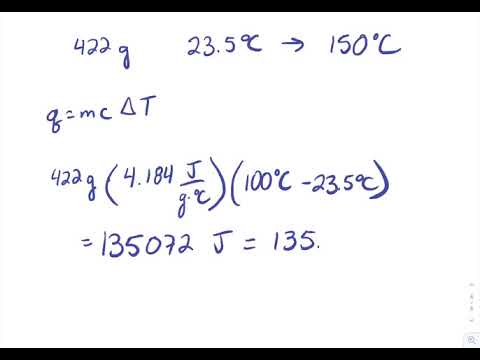 422 g 23.5°C → 150°C
q = mc ΔT
422 g (4.184 J/g·°C)(100°C - 23.5°C)
= 135072 J = 135.